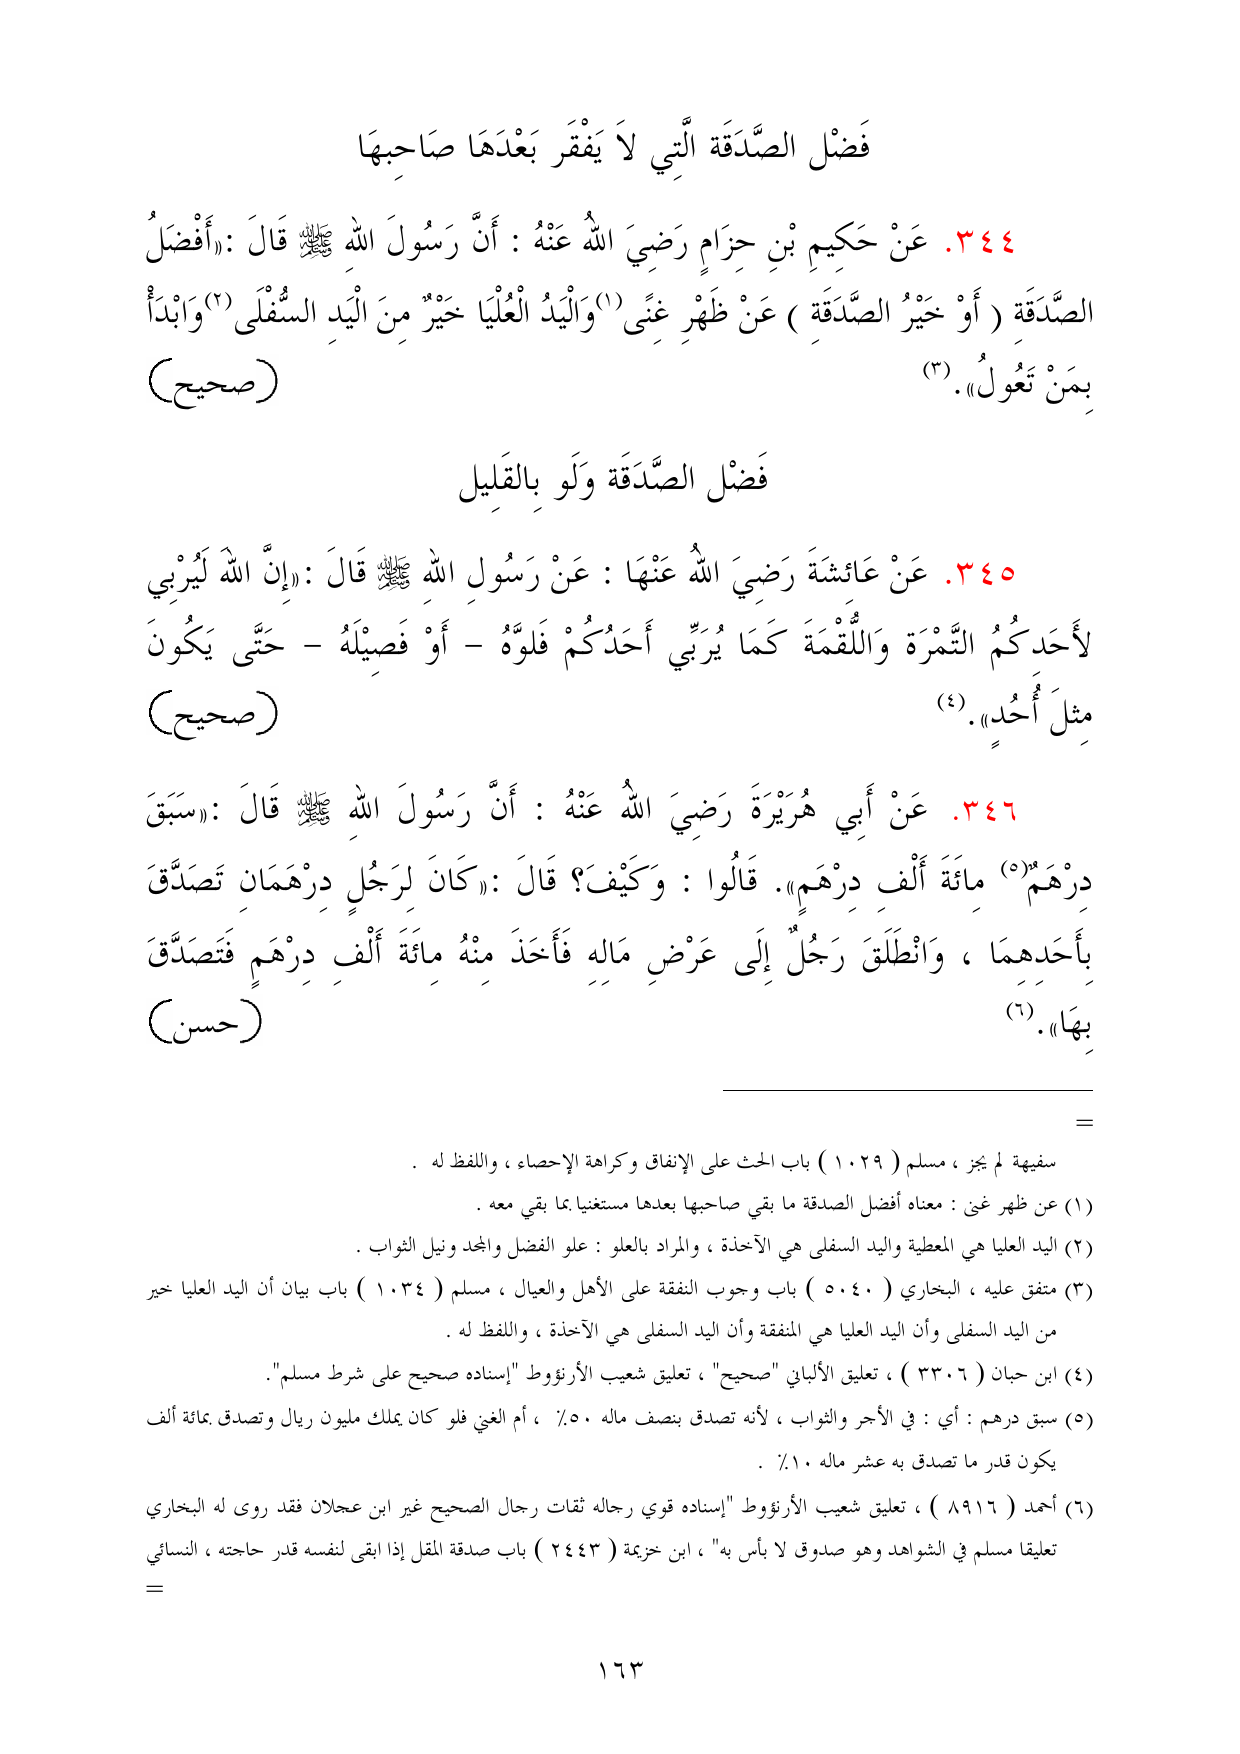 فَضْل الصَّدَقَة الَّتِي لاَ يَفْقَر بَعْدَهَا صَاحِبهَا
٣٤٤. عَنْ حَكِيمِ بْنِ حِزَامٍ رَضِيَ اللهُ عَنْهُ : أَنَّ رَسُولَ اللهِ ﷺ قَالَ :«أَفْضَلُ
الصَّدَقَةِ ( أَوْ خَيْرُ الصَّدَقَةِ ) عَنْ ظَهْرِ غِنًى(١)وَالْيَدُ الْعُلْيَا خَيْرٌ مِنَ الْيَدِ السُّفْلَى(٢)وَابْدَأْ
بِمَنْ تَعُولُ».(٣) (صحيح)
فَضْل الصَّدَقَة وَلَو بِالقَلِيل
٣٤٥. عَنْ عَائِشَةَ رَضِيَ اللهُ عَنْهَا : عَنْ رَسُولِ اللهِ ﷺ قَالَ :«إِنَّ اللهَ لَيُرْبِي
لأَحَدِكُمُ التَّمْرَة وَاللُّقْمَةَ كَمَا يُرَبِّي أَحَدُكُمْ فَلوَّهُ – أَوْ فَصِيْلَهُ – حَتَّى يَكُونَ
مِثلَ أُحُدٍ».(٤) (صحيح)
٣٤٦. عَنْ أَبِي هُرَيْرَةَ رَضِيَ اللهُ عَنْهُ : أَنَّ رَسُولَ اللهِ ﷺ قَالَ :«سَبَقَ
دِرْهَمٌ(٥) مِائَةَ أَلْفِ دِرْهَمٍ». قَالُوا : وَكَيْفَ؟ قَالَ :«كَانَ لِرَجُلٍ دِرْهَمَانِ تَصَدَّقَ
بِأَحَدِهِمَا ، وَانْطَلَقَ رَجُلٌ إِلَى عَرْضِ مَالِهِ فَأَخَذَ مِنْهُ مِائَةَ أَلْفِ دِرْهَمٍ فَتَصَدَّقَ
بِهَا».(٦) (حسن)
=
سفيهة لم يجز ، مسلم ( ١٠٢٩ ) باب الحث على الإنفاق وكراهة الإحصاء ، واللفظ له .
(١) عن ظهر غنى : معناه أفضل الصدقة ما بقي صاحبها بعدها مستغنيا بما بقي معه .
(٢) اليد العليا هي المعطية واليد السفلى هي الآخذة ، والمراد بالعلو : علو الفضل والمجد ونيل الثواب .
(٣) متفق عليه ، البخاري ( ٥٠٤٠ ) باب وجوب النفقة على الأهل والعيال ، مسلم ( ١٠٣٤ ) باب بيان أن اليد العليا خير
من اليد السفلى وأن اليد العليا هي المنفقة وأن اليد السفلى هي الآخذة ، واللفظ له .
(٤) ابن حبان ( ٣٣٠٦ ) ، تعليق الألباني "صحيح" ، تعليق شعيب الأرنؤوط "إسناده صحيح على شرط مسلم".
(٥) سبق درهم : أي : في الأجر والثواب ، لأنه تصدق بنصف ماله ٥٠٪ ، أم الغني فلو كان يملك مليون ريال وتصدق بمائة ألف
يكون قدر ما تصدق به عشر ماله ١٠٪ .
(٦) أحمد ( ٨٩١٦ ) ، تعليق شعيب الأرنؤوط "إسناده قوي رجاله ثقات رجال الصحيح غير ابن عجلان فقد روى له البخاري
تعليقا مسلم في الشواهد وهو صدوق لا بأس به" ، ابن خزيمة ( ٢٤٤٣ ) باب صدقة المقل إذا ابقى لنفسه قدر حاجته ، النسائي
=
١٦٣